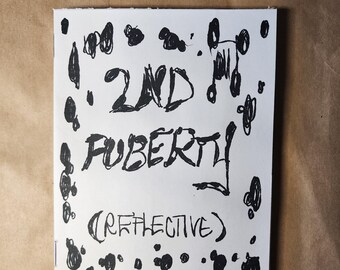 2ND
PUBERTY
(REFLECTIVE)